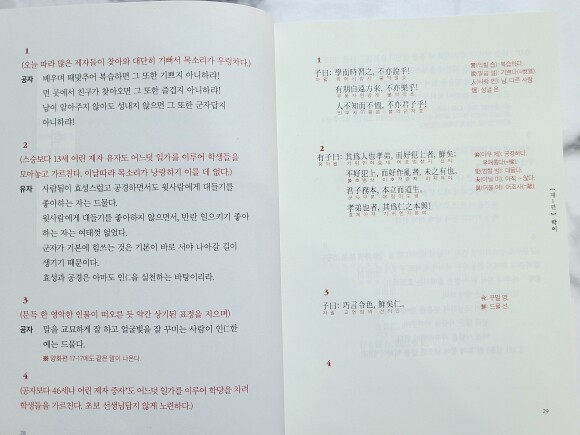 1
(오늘 따라 많은 제자들이 찾아와 대단히 기뻐서 목소리가 우렁차다.)
공자 배우며 때맞추어 복습하면 그 또한 기쁘지 아니하랴!
먼 곳에서 친구가 찾아오면 그 또한 즐겁지 아니하랴!
남이 알아주지 않아도 성내지 않으면 그 또한 군자답지
아니하랴!
2
(스승보다 13세 어린 제자 유자도 어느덧 일가를 이루어 학생들을
모아놓고 가르친다. 이날따라 목소리가 낭랑하기 이를 데 없다.)
유자 사람됨이 효성스럽고 공경하면서도 윗사람에게 대들기를
좋아하는 자는 드물다.
윗사람에게 대들기를 좋아하지 않으면서, 반란 일으키기 좋아
하는 자는 여태껏 없었다.
군자가 기본에 힘쓰는 것은 기본이 바로 서야 나아갈 길이
생기기 때문이다.
효성과 공경은 아마도 인仁을 실천하는 바탕이리라.
3
(문득 한 영악한 인물이 떠오른 듯 약간 상기된 표정을 지으며)
공자 말을 교묘하게 잘 하고 얼굴빛을 잘 꾸미는 사람이 인仁한
예는 드물다.
※ 양화편 17-17에도 같은 말이 나온다.
4
(공자보다 46세나 어린 제자 증자도 어느덧 일가를 이루어 학당을 차려
학생들을 가르친다. 초보 선생님답지 않게 노련하다.)
28
1
子曰: 學而時習之, 不亦說乎!
有朋自遠方來, 不亦樂乎!
人不知而不慍, 不亦君子乎!
2
有子曰: 其爲人也孝弟, 而好犯上者, 鮮矣;
不好犯上, 而好作亂者, 未之有也.
君子務本, 本立而道生.
孝弟也者, 其爲仁之本與!
3
子曰: 巧言令色, 鮮矣仁.
令: 꾸밀 령.
鮮: 드물 선.
4
【제1편】 학이
29